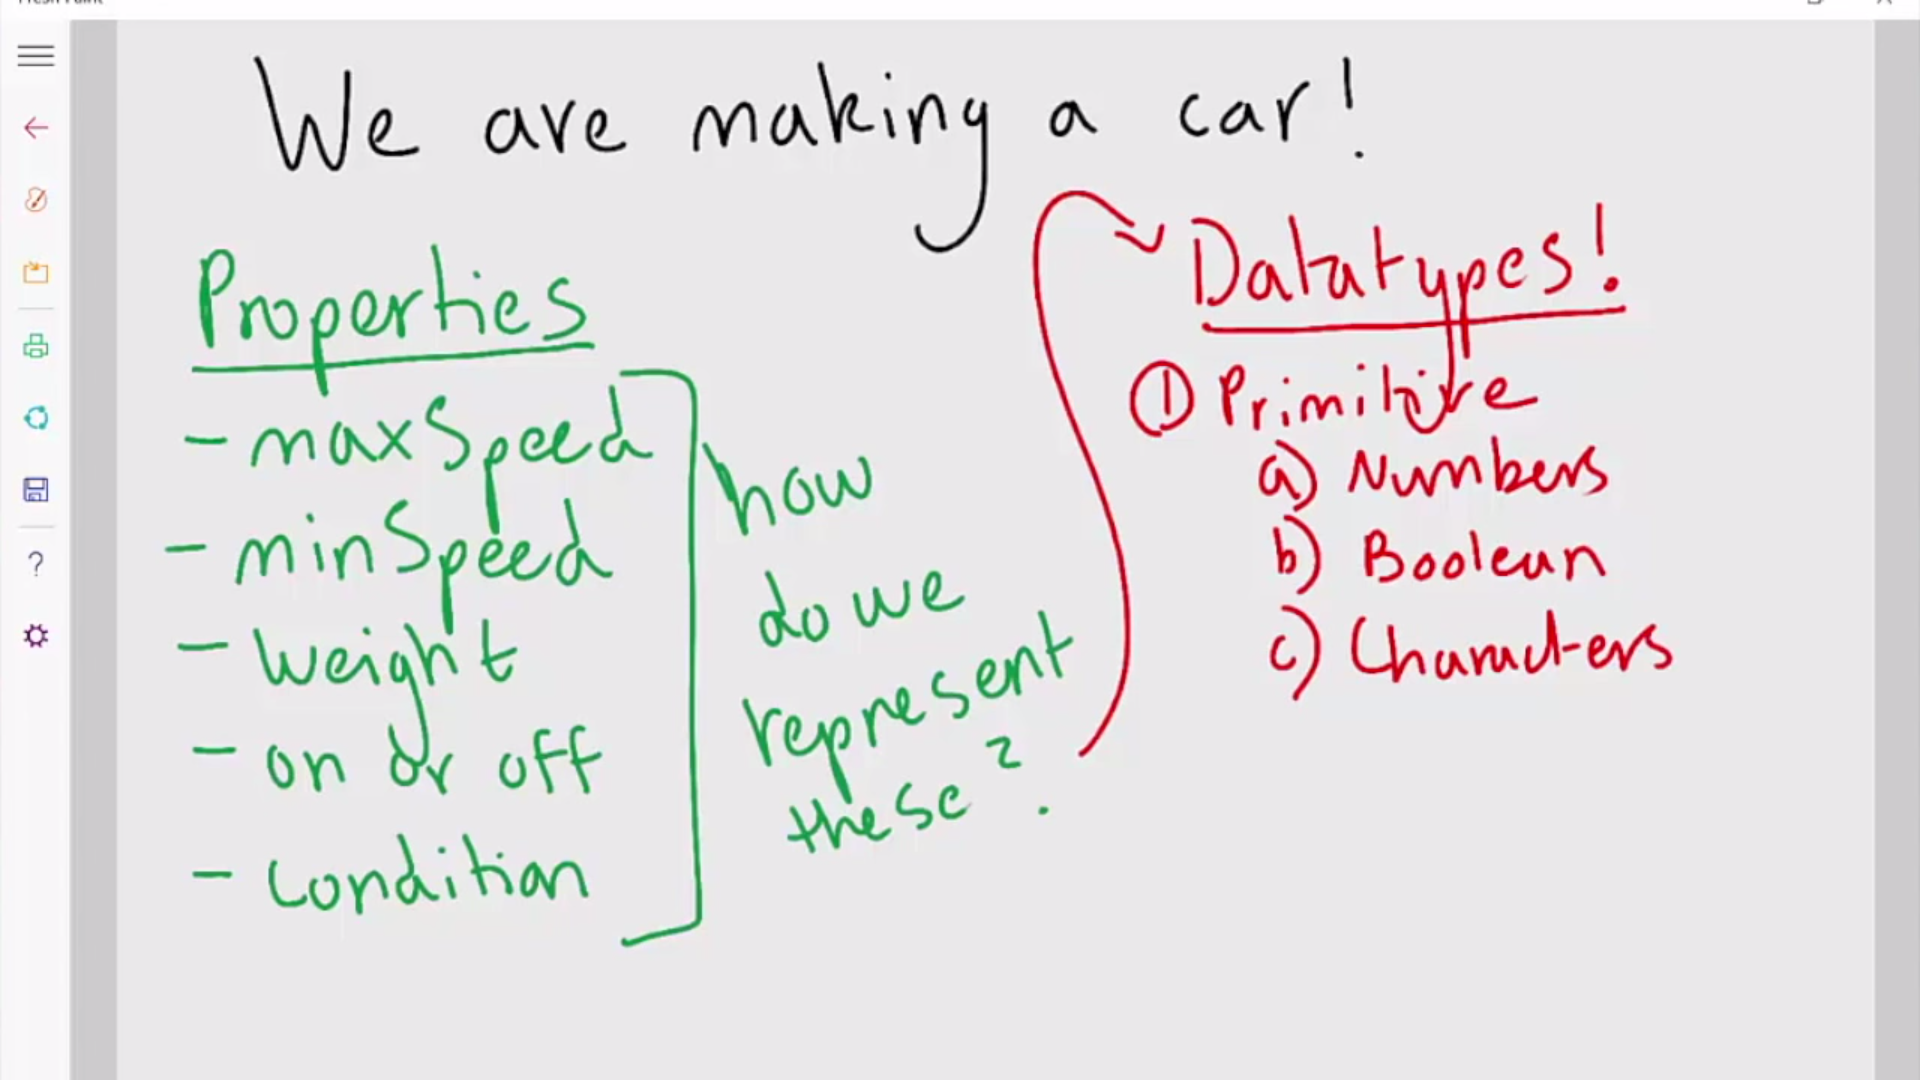 We are making a car!
Properties
- maxSpeed
- minSpeed
- weight
- on or off
- condition
how
do we
represent
these?
Datatypes!
① Primitive
a) Numbers
b) Boolean
c) Characters
?